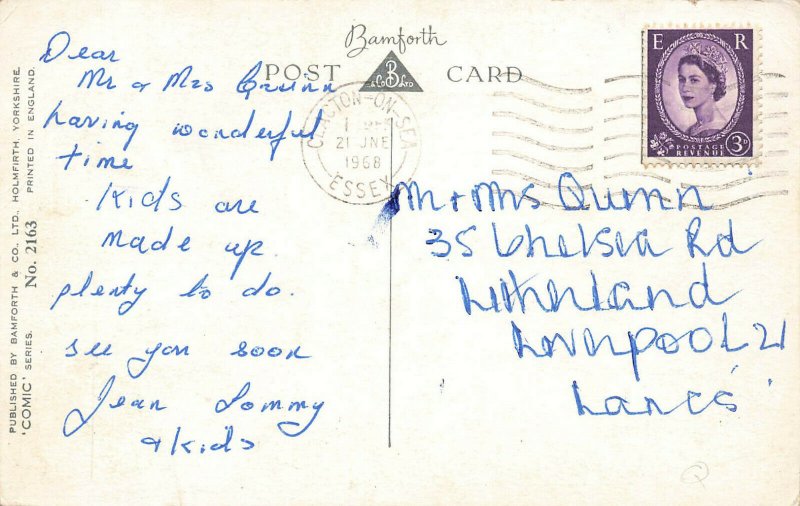 PUBLISHED BY BAMFORTH & CO. LTD. HOLMFIRTH, YORKSHIRE.
'COMIC' SERIES. No. 2163 PRINTED IN ENGLAND.
Bamforth
POST CARD
& Co B LTD
E R
POSTAGE
REVENUE
3D
CLACTON-ON-SEA
21 JNE
1968
ESSEX
Dear
Mr & Mrs Quinn
having wonderful
time
Kids are
made up.
plenty to do.
see you soon
Jean Tommy
& kids
Mr + Mrs Quinn
35 Chelsea Rd
Litherland
Liverpool 21
Lancs